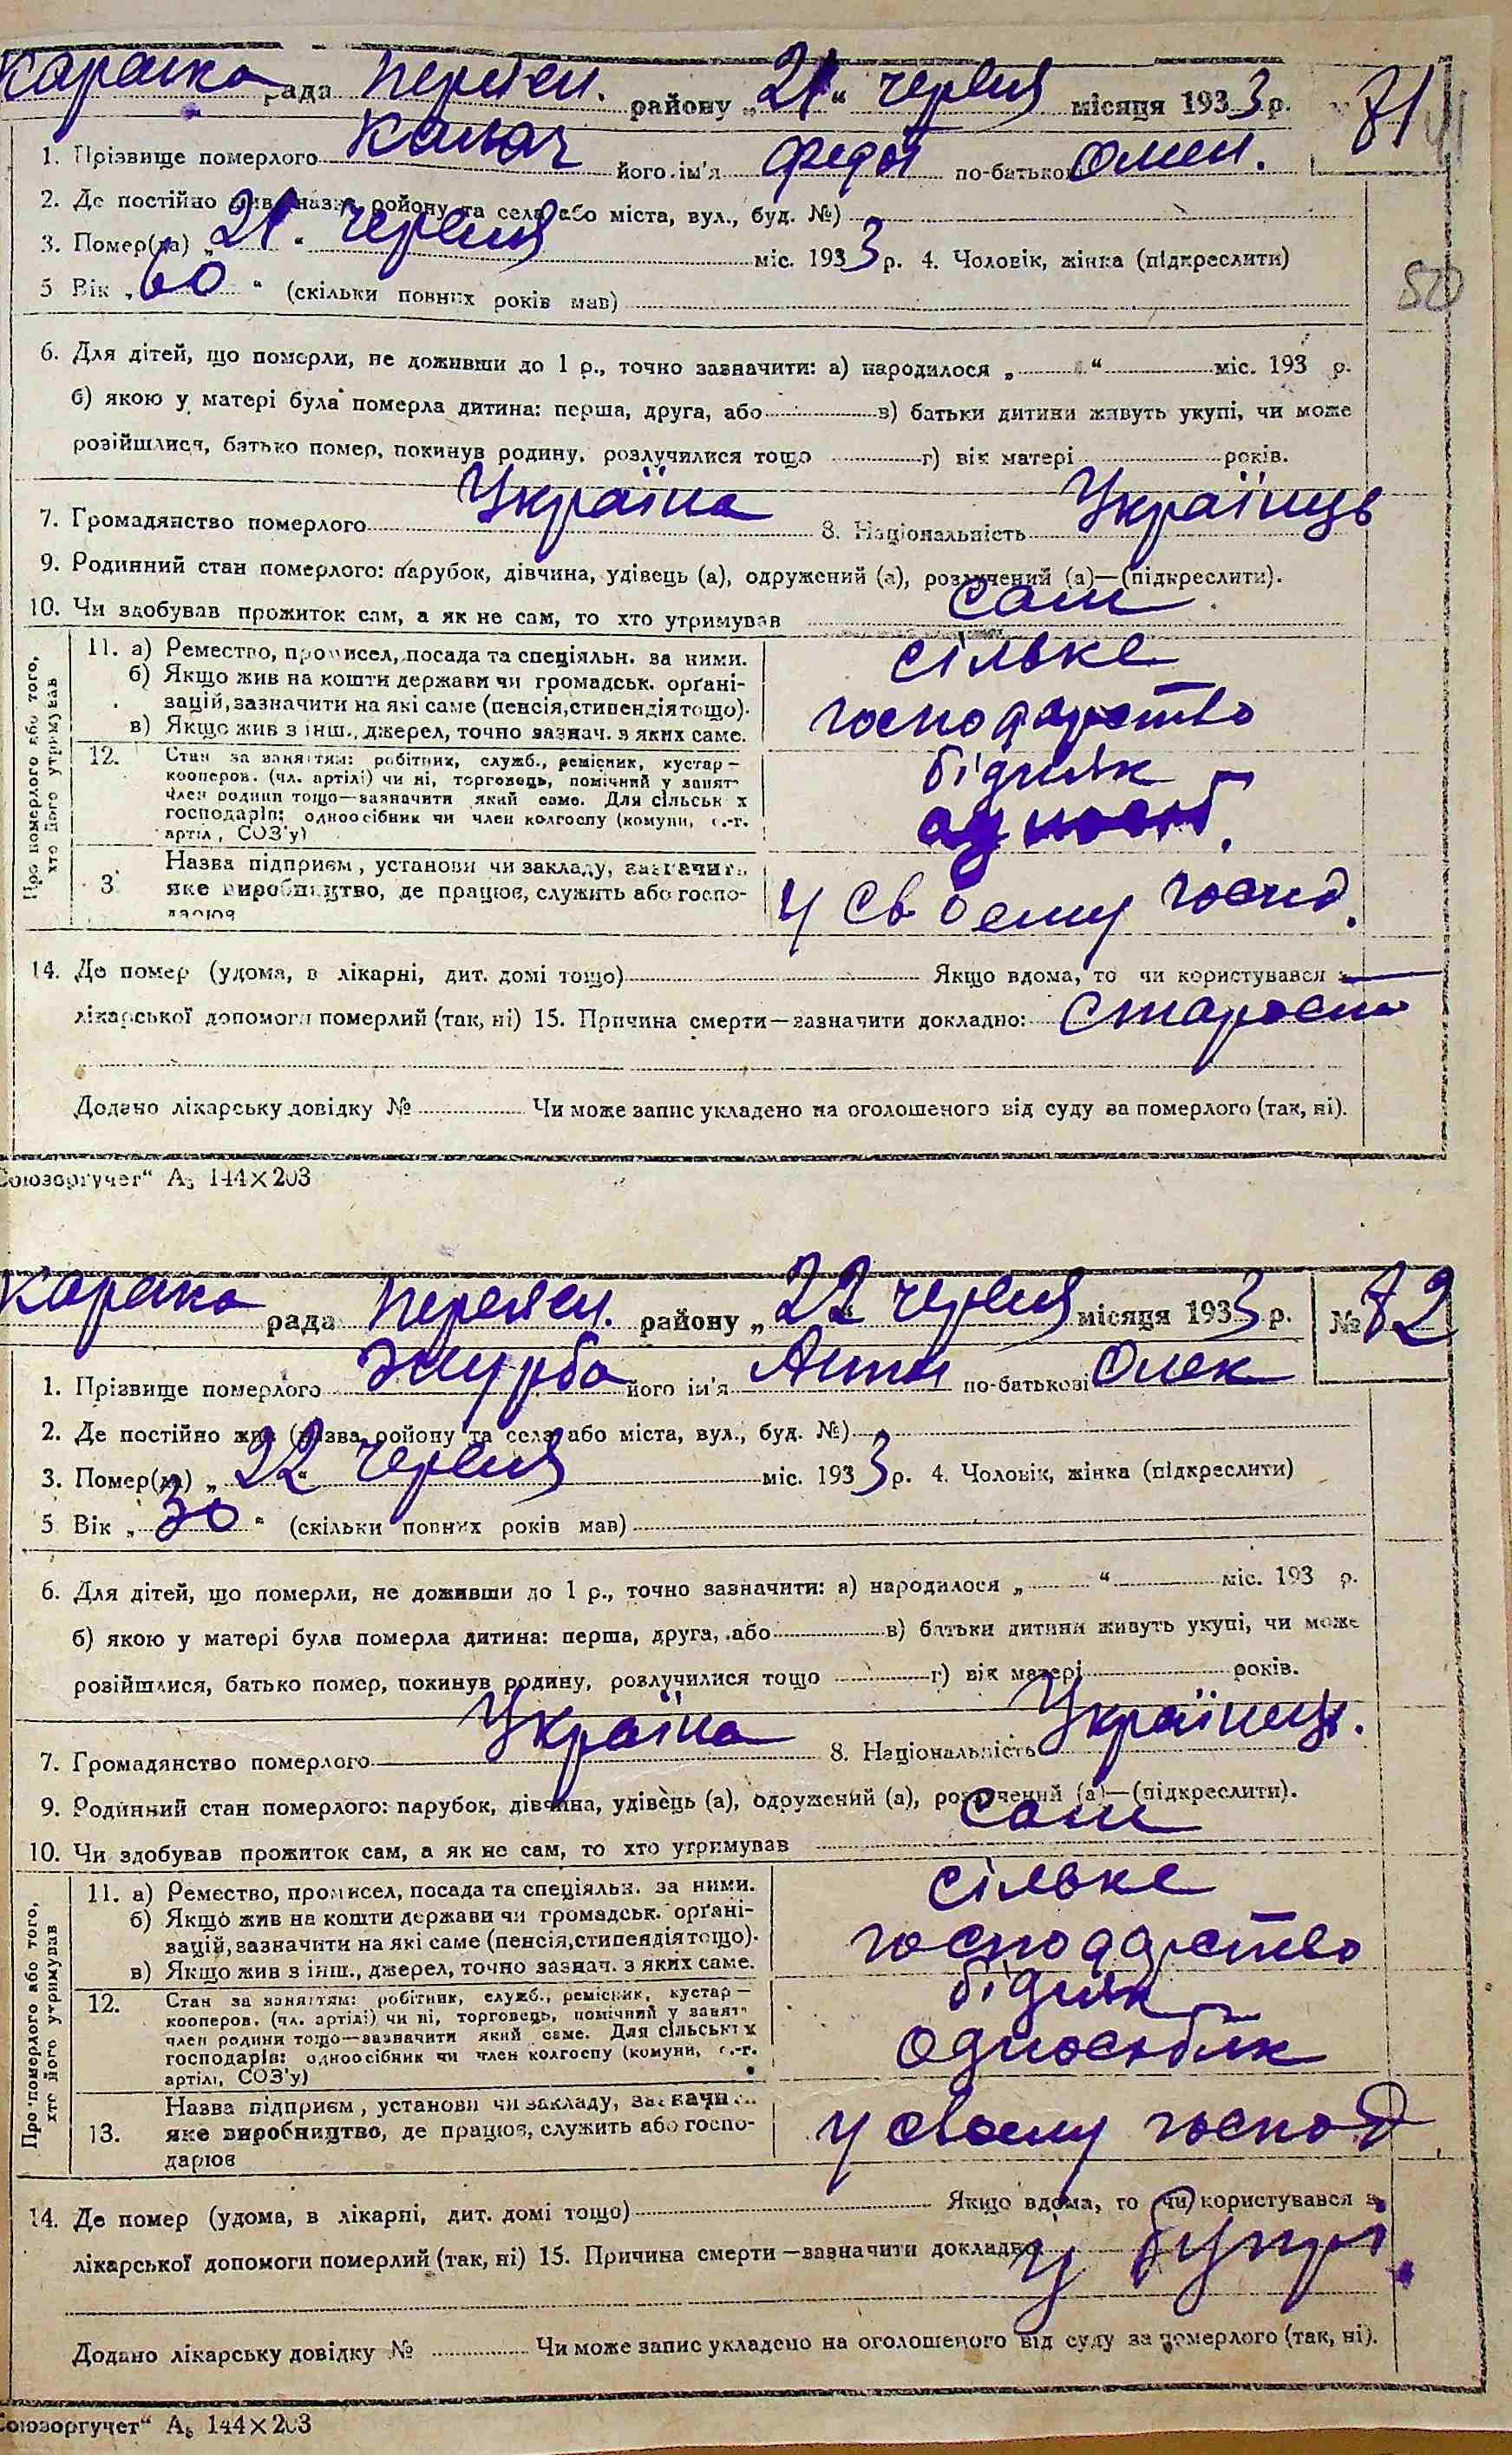 Каранка рада Переясл. району „21“ червня місяця 1933 р. 81
1. Прізвище померлого Калач його ім'я Федот по-батькові Омел.
2. Де постійно жив (назва ройону та села або міста, вул., буд. №)
3. Помер(ла) „21“ червня міс. 1933 р. 4. Чоловік, жінка (підкреслити)
5 Вік „60“ (скільки повних років мав)
520
6. Для дітей, що померли, не доживши до 1 р., точно зазначити: а) народилося „ “ міс. 193 р.
б) якою у матері була померла дитина: перша, друга, або в) батьки дитини живуть укупі, чи може
розійшлися, батько помер, покинув родину, розлучилися тощо г) вік матері років.
7. Громадянство померлого Україна 8. Національність Українць
9. Родинний стан померлого: парубок, дівчина, удівець (а), одружений (а), розлучений (а)—(підкреслити).
10. Чи здобував прожиток сам, а як не сам, то хто утримував сам
Про померлого або того, хто його утримував
11. а) Ремество, промисел, посада та спеціяльн. за ними. сільке
б) Якщо жив на кошти держави чи громадськ. орґані-
зацій, зазначити на які саме (пенсія, стипендія тощо). господарство
в) Якщо жив з інш., джерел, точно зазнач. з яких саме.
12. Стан за заняттям: робітник, служб., ремісник, кустар— бідняк —
кооперов. (чл. артілі) чи ні, торговець, помічний у занятт
член родини тощо—зазначити який саме. Для сільськ х
господарів: одноосібник чи член колгоспу (комуни, с.-г. одноосіб.
артіл, СОЗ'у)
Назва підприєм, установи чи закладу, зазначить
3 яке виробництво, де працює, служить або госпо- у своєму госпд.
дарює
14. Де помер (удома, в лікарні, дит. домі тощо) Якщо вдома, то чи користувався з
лікарської допомоги померлий (так, ні) 15. Причина смерти—зазначити докладно: старость
Додано лікарську довідку № Чи може запис укладено на оголошеного від суду за померлого (так, ні).
Союзоргучет“ А₅ 144×203
Каранка рада Переясл. району „22 червня місяця 1933 р. № 82
1. Прізвище померлого Журба його ім'я Антін по-батькові Олек
2. Де постійно жив (назва ройону та села або міста, вул., буд. №)
3. Помер(ла) „22“ червня міс. 1933 р. 4. Чоловік, жінка (підкреслити)
5 Вік „30“ (скільки повних років мав)
6. Для дітей, що померли, не доживши до 1 р., точно зазначити: а) народилося „ “ міс. 193 р.
б) якою у матері була померла дитина: перша, друга, або в) батьки дитини живуть укупі, чи може
розійшлися, батько помер, покинув родину, розлучилися тощо г) вік матері років.
7. Громадянство померлого Україна 8. Національність Українець.
9. Родинний стан померлого: парубок, дівчина, удівець (а), одружений (а), розлучений (а)—(підкреслити).
10. Чи здобував прожиток сам, а як не сам, то хто утримував сам
Про померлого або того, хто його утримував
11. а) Ремество, промисел, посада та спеціяльн. за ними. сільке
б) Якщо жив на кошти держави чи громадськ. орґані-
зацій, зазначити на які саме (пенсія, стипендія тощо). господарство
в) Якщо жив з інш., джерел, точно зазнач. з яких саме.
12. Стан за заняттям: робітник, служб., ремісник, кустар— бідняк —
кооперов. (чл. артілі) чи ні, торговець, помічний у занятт
член родини тощо—зазначити який саме. Для сільських
господарів: одноосібник чи член колгоспу (комуни, с.-г. одноосібник
артілі, СОЗ'у)
Назва підприєм, установи чи закладу, зазначи
13. яке виробництво, де працює, служить або госпо- у своєму господ
дарює
14. Де помер (удома, в лікарні, дит. домі тощо) Якщо вдома, то чи користувався з
лікарської допомоги померлий (так, ні) 15. Причина смерти—зазначити докладно у бупрі.
Додано лікарську довідку № Чи може запис укладено на оголошеного від суду за померлого (так, ні).
Союзоргучет“ А₅ 144×203